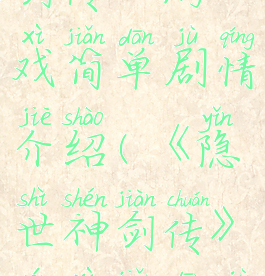 xì jiǎn dān jù qíng
戏简单剧情
jiè shào yǐn
介绍(《隐
shì shén jiàn chuán
世神剑传》